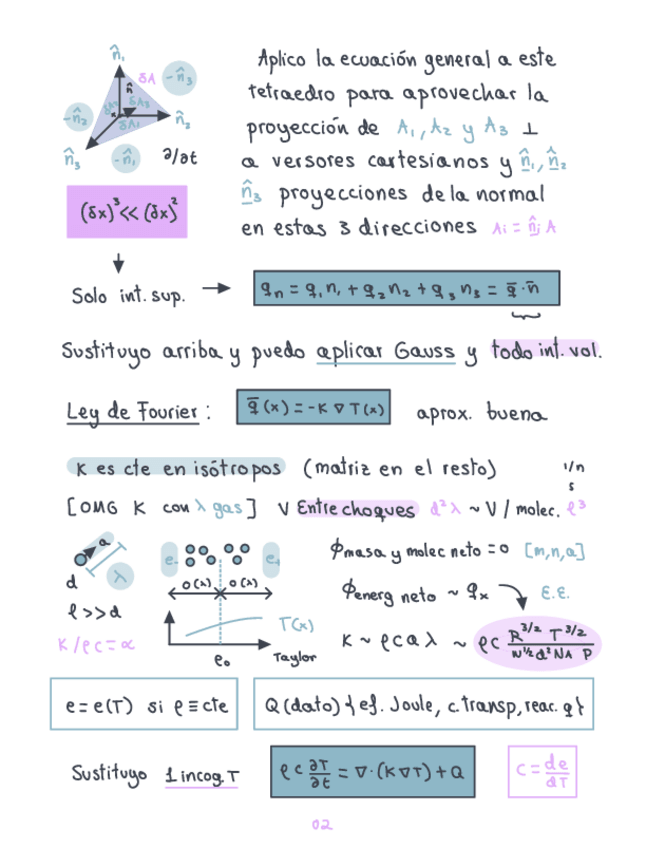 n̂₁
δA
-n̂₃
n̂
δA₂
δA₃
-n̂₂
δA₁
n̂₂
n̂₃
-n̂₁
∂/∂t
Aplico la ecuación general a este
tetraedro para aprovechar la
proyección de A₁, A₂ y A₃ ⊥
a versores cartesianos y n̂₁, n̂₂
n̂₃ proyecciones de la normal
en estas 3 direcciones Ai = n̂j A
(δx)³ << (δx)²
Solo int. sup. → qn = q₁n₁ + q₂n₂ + q₃n₃ = q̄·n̄
Sustituyo arriba y puedo aplicar Gauss y todo int. vol.
Ley de Fourier: q̄(x) = -K ∇T(x) aprox. buena
K es cte en isótropos (matriz en el resto) 1/n
[OMG K con λ gas] V Entre choques d²λ ~ V/molec. ℓ³
s
a
d
λ
e-
e+
O(λ) O(λ)
ϕmasa y molec neto = 0 [m,n,a]
ℓ >> d
ϕenerg neto ~ qx E.E.
K/ρc = α
T(x)
e₀ Taylor
K ~ ρcaλ ~ ρc R^3/2 T^3/2 / W^1/2 d² NA P
e = e(T) si ρ ≡ cte
Q (dato) { ef. Joule, c. transp, reac. q }
Sustituyo 1 incog. T
ρc ∂T/∂t = ∇·(K∇T) + Q
c = de/dT
02